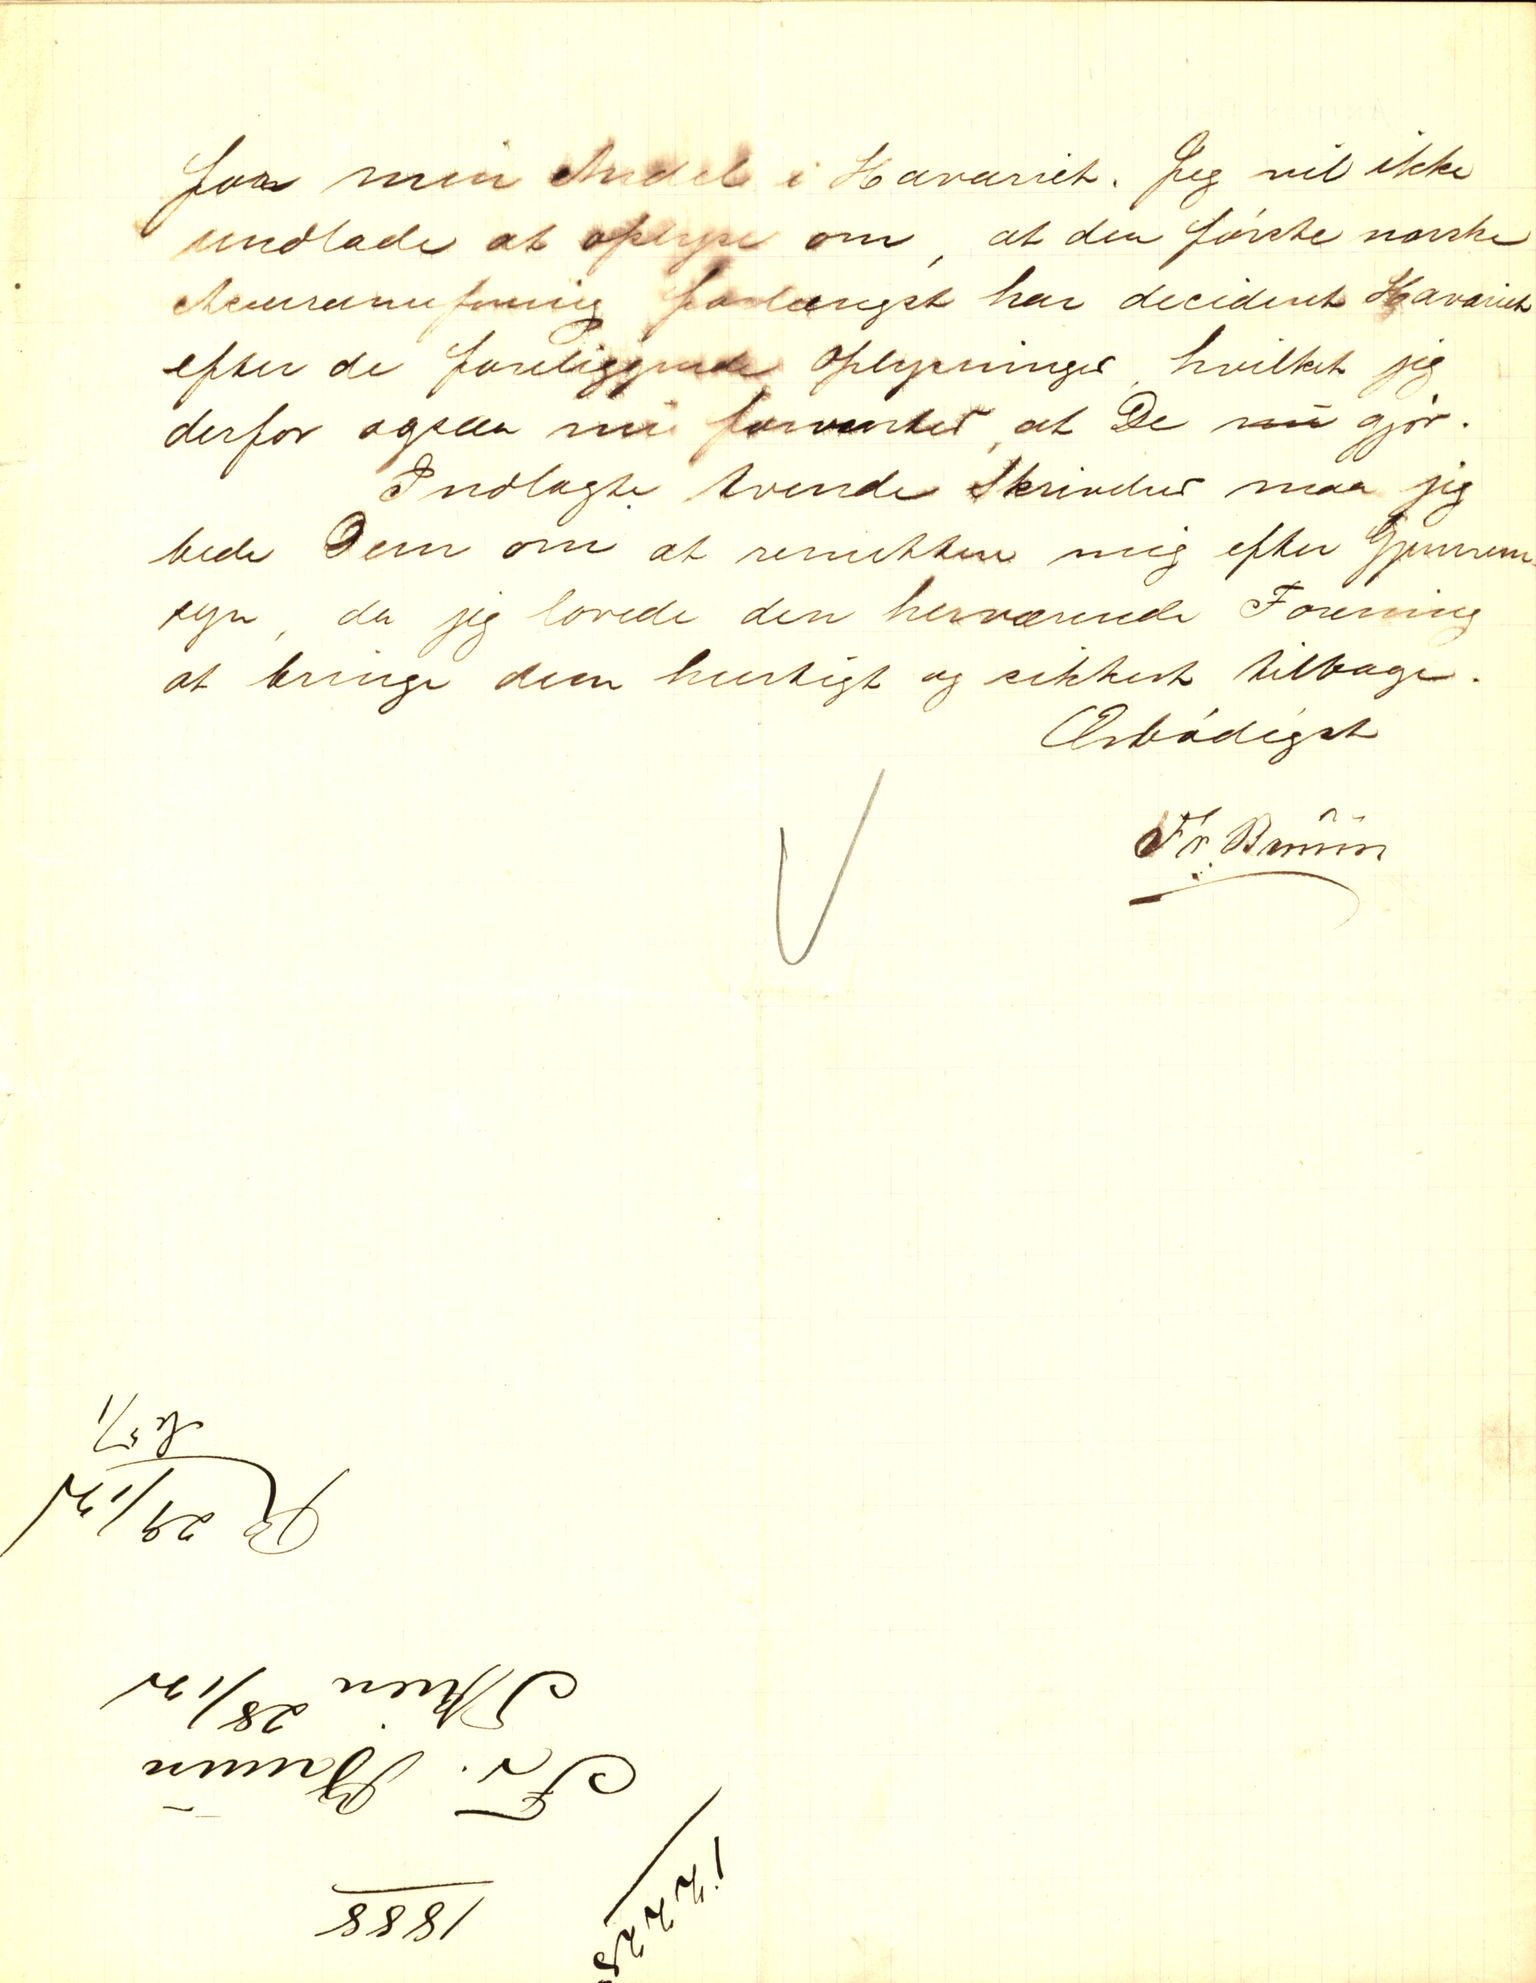 faa min Andel i Havariet. Jeg vil ikke
undlade at oplyse om, at den første norske
Assuranceforening forlængst har decideret Havariet
efter de foreliggende Oplysninger, hvilket jeg
derfor ogsaa nu forventer, at De nu gjør.
Indlagte tvende Skrivelser maa jeg
bede Dem om at remittere mig efter Gjennem-
syn, da jeg lovede den herværende Forening
at bringe dem hurtigt og sikkert tilbage.
Ærbødigst
Fr. Bruun
1888
Fr. Bruun
Skien 28/12
R 29/12